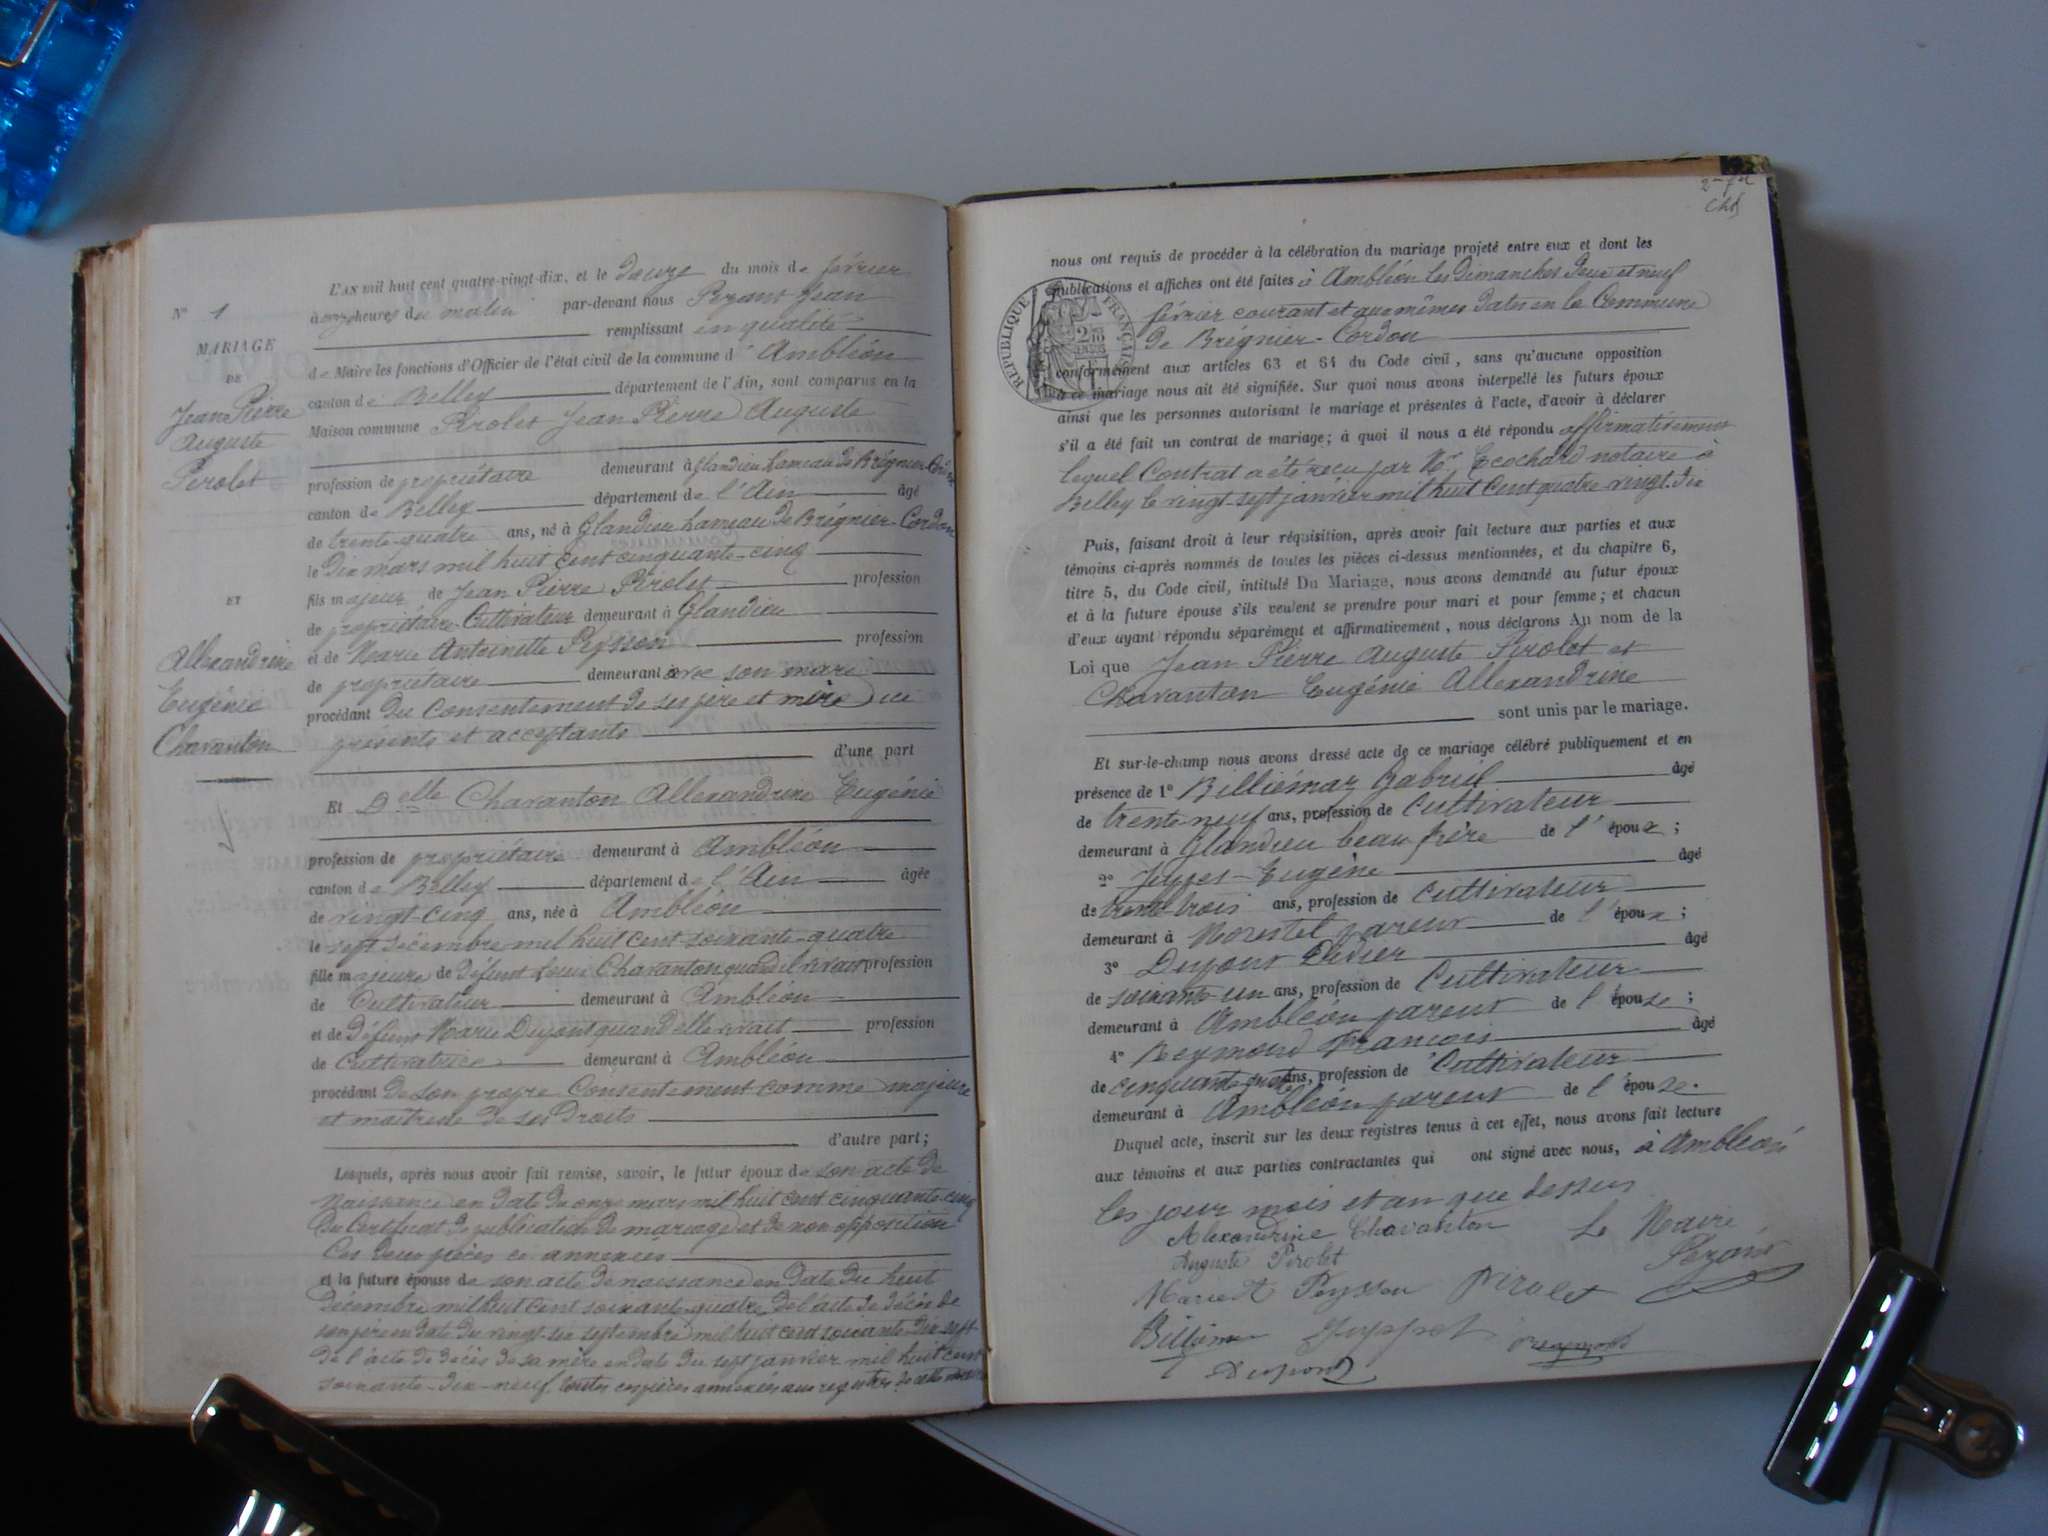 N° 1
MARIAGE
DE
Jean Pierre
Auguste
Pirolet
ET
Allexandrine
Eugénie
Chavanton
L'AN mil huit cent quatre-vingt-dix, et le Douze du mois de février
à onze heures du matin par-devant nous Jean
remplissant en qualité
de Maire les fonctions d'Officier de l'état civil de la commune d'Ambléon
canton de Belley département de l'Ain, sont comparus en la
Maison commune Pirolet Jean Pierre Auguste
profession de propriétaire demeurant à Glandieu hameau de Brégnier-Cordon
canton de Belley département de l'Ain âgé
de trente-quatre ans, né à Glandieu hameau de Brégnier-Cordon
le Dix mars mil huit cent cinquante-cinq
fils majeur de Jean Pierre Pirolet profession
de propriétaire-Cultivateur demeurant à Glandieu
et de Marie Antoinette Peysson profession
de propriétaire demeurant avec son mari
procédant du consentement de ses père et mère ici
présents et acceptants
d'une part
Et Delle Chavanton Allexandrine Eugénie
profession de propriétaire demeurant à Ambléon
canton de Belley département de l'Ain âgée
de vingt-cinq ans, née à Ambléon
le sept décembre mil huit cent soixante-quatre
fille majeure de défunt Chavanton quand il vivait profession
de Cultivateur demeurant à Ambléon
et de défunt Marie Dupont quand elle vivait profession
de Cultivatrice demeurant à Ambléon
procédant de son propre Consentement comme majeure
et maitresse de ses Droits
d'autre part;
Lesquels, après nous avoir fait remise, savoir, le futur époux de son acte de
Naissance en date du onze mars mil huit cent cinquante-cinq
Du Certificat de publication de mariage et de non opposition
Ces deux pièces ci annexées
et la future épouse de son acte de naissance en date du huit
décembre mil huit cent soixante-quatre De l'acte de décès de
son père en date du vingt-six septembre mil huit cent soixante-dix-sept
de l'acte de décès de sa mère en date du sept janvier mil huit cent
soixante-dix-neuf, toutes ces pièces annexées aux registres de cette
nous ont requis de procéder à la célébration du mariage projeté entre eux et dont les
publications et affiches ont été faites à Ambléon les Dimanches Deux et neuf
février courant et que mêmes dates en la Commune
de Brégnier-Cordon
RÉPUBLIQUE FRANÇAISE
conformément aux articles 63 et 64 du Code civil, sans qu'aucune opposition
à ce mariage nous ait été signifiée. Sur quoi nous avons interpellé les futurs époux
ainsi que les personnes autorisant le mariage et présentes à l'acte, d'avoir à déclarer
s'il a été fait un contrat de mariage; à quoi il nous a été répondu affirmativement
lequel Contrat a été reçu par Me Ecochard notaire à
Belley le vingt-sept janvier mil huit Cent quatre vingt-dix
Puis, faisant droit à leur réquisition, après avoir fait lecture aux parties et aux
témoins ci-après nommés de toutes les pièces ci-dessus mentionnées, et du chapitre 6,
titre 5, du Code civil, intitulé Du Mariage, nous avons demandé au futur époux
et à la future épouse s'ils veulent se prendre pour mari et pour femme; et chacun
d'eux ayant répondu séparément et affirmativement, nous déclarons Au nom de la
Loi que Jean Pierre Auguste Pirolet et
Chavanton Eugénie Allexandrine
sont unis par le mariage.
Et sur-le-champ nous avons dressé acte de ce mariage célébré publiquement et en
présence de 1° Billiémaz Gabriel âgé
de trente neuf ans, profession de Cultivateur
demeurant à Glandieu beau frère de l'époux;
2° Eugène âgé
de trente-trois ans, profession de Cultivateur
demeurant à Morestel parent de l'époux;
3° Dupont Didier âgé
de soixante un ans, profession de Cultivateur
demeurant à Ambléon parent de l'épouse;
4° Reymond François âgé
de cinquante ans, profession de Cultivateur
demeurant à Ambléon parent de l'épouse.
Duquel acte, inscrit sur les deux registres tenus à cet effet, nous avons fait lecture
aux témoins et aux parties contractantes qui ont signé avec nous, à Ambléon
les jour mois et an que dessus
Alexandrine Chavanton Le Maire
Auguste Pirolet
Marie A Peysson Pirolet
Reymond
Dupont